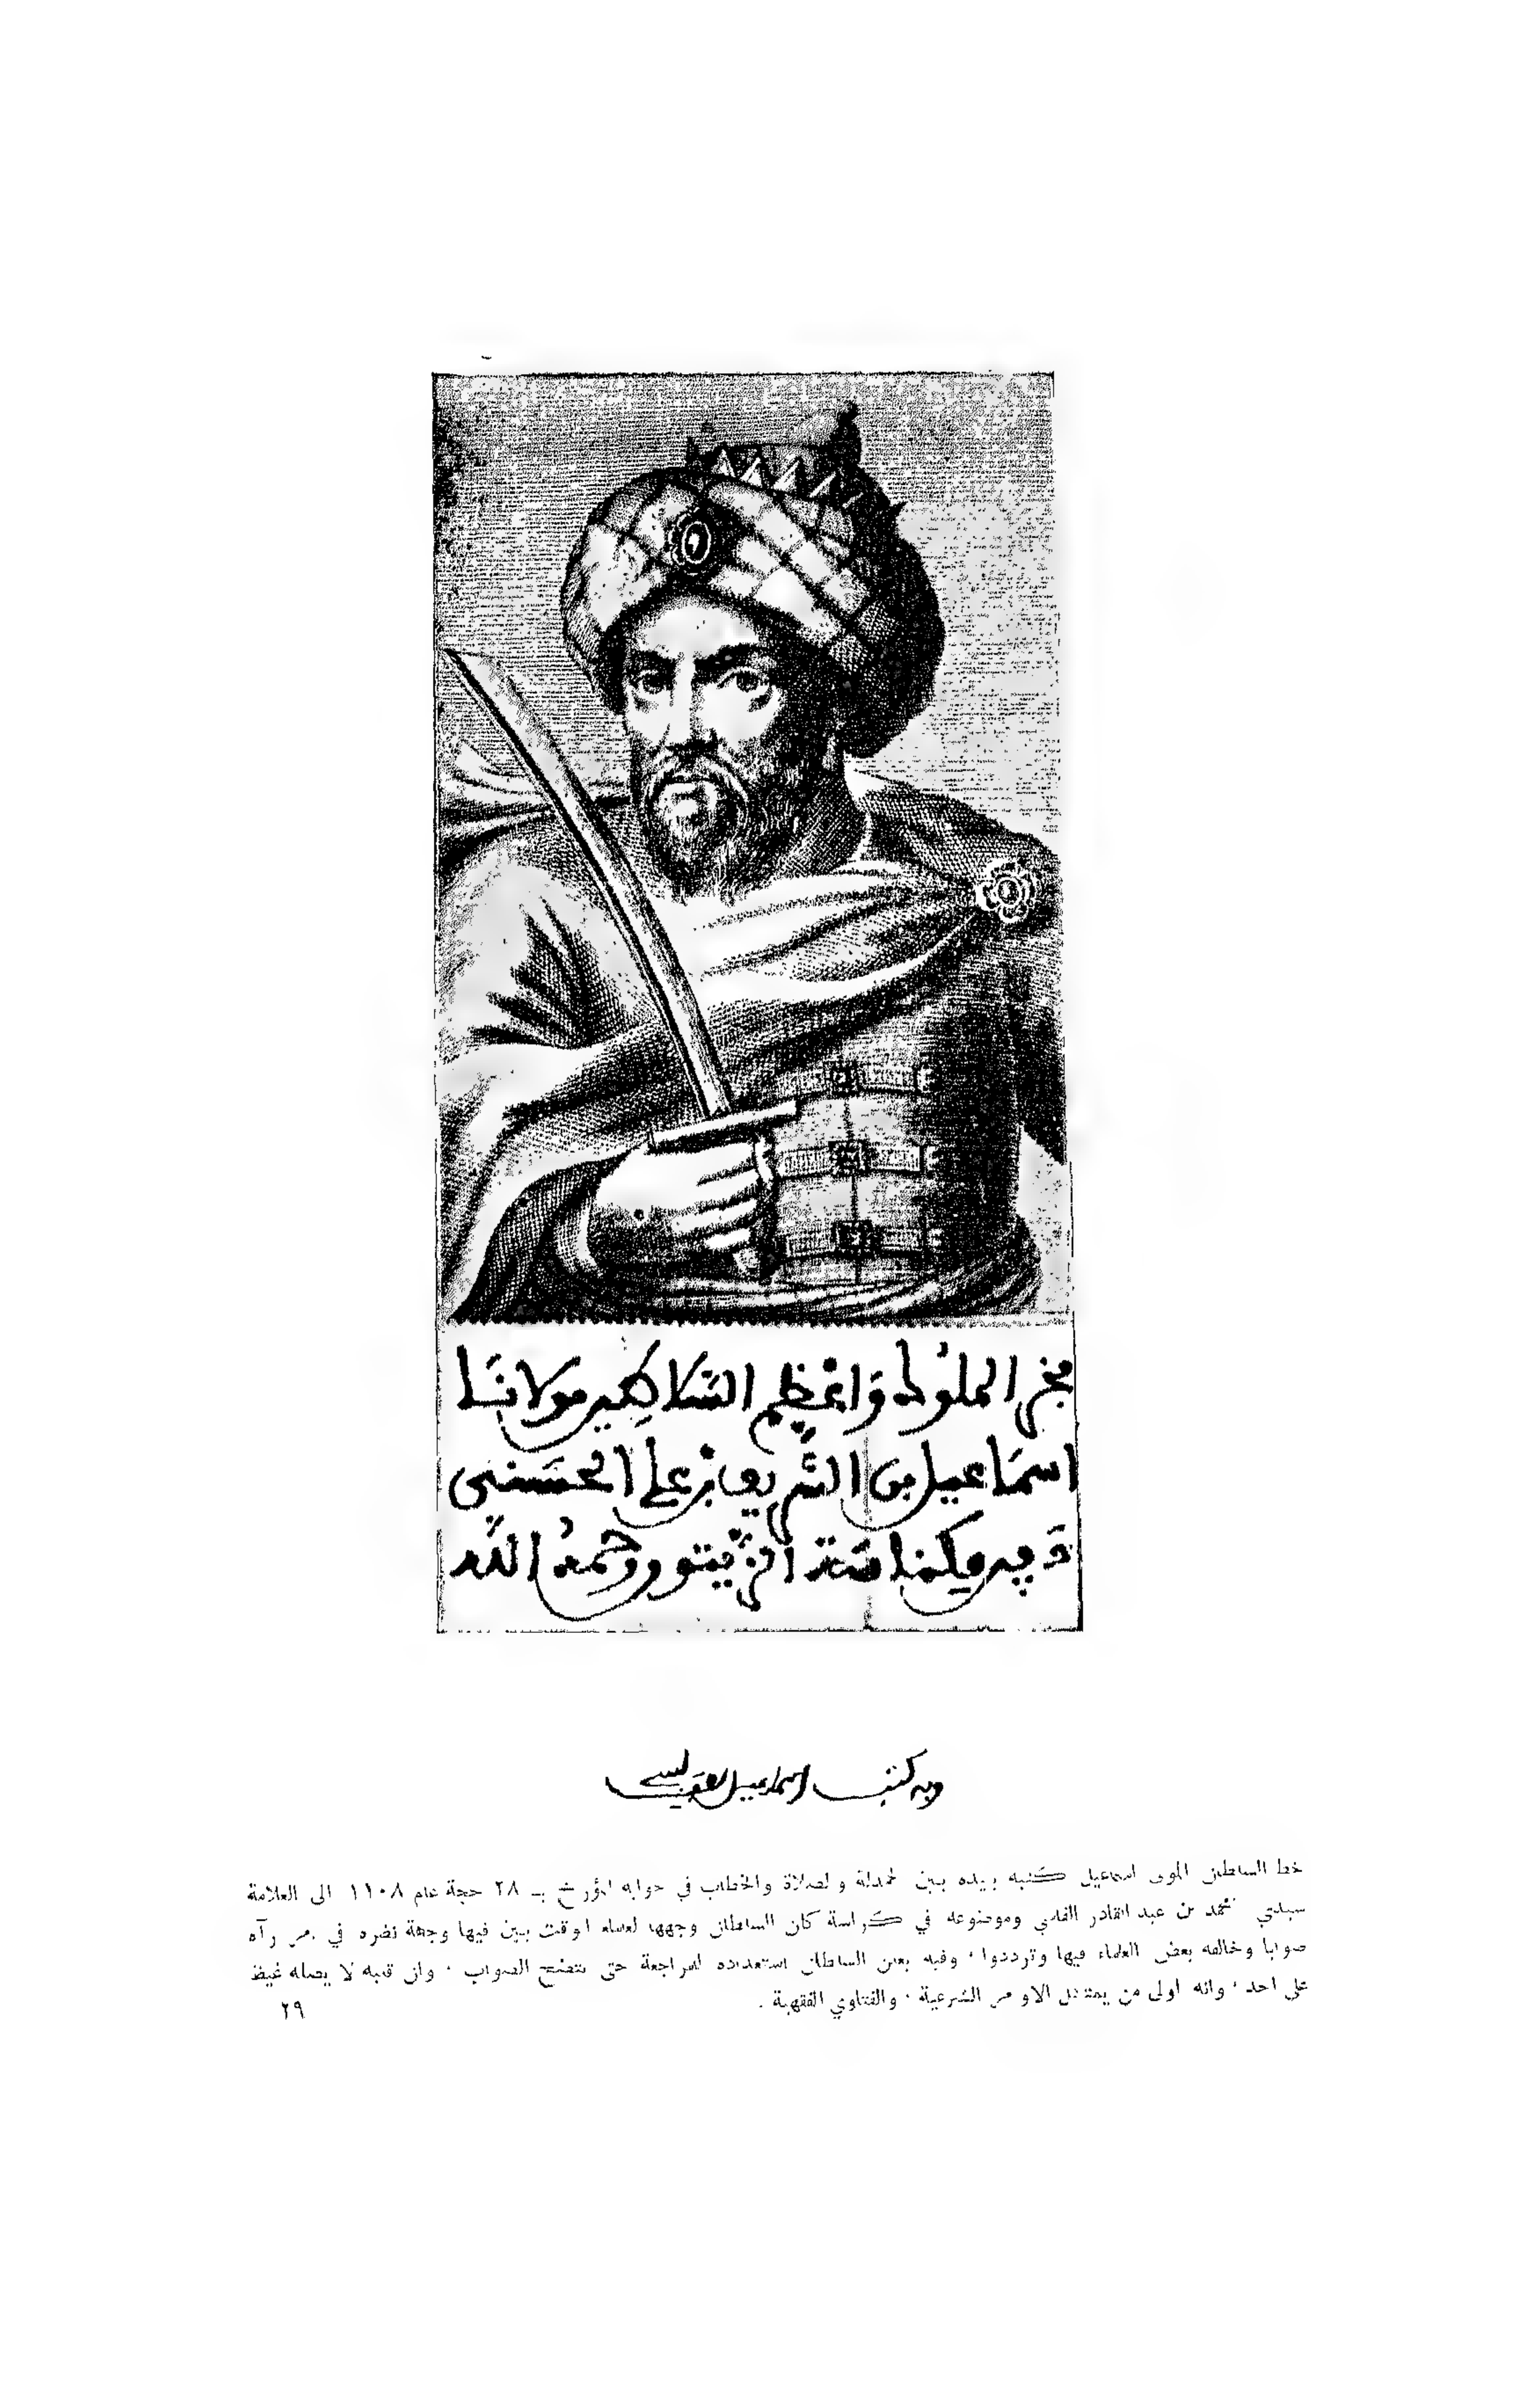 فخر الملوك وأعظم السلاطين مولانا
اسماعيل بن الشريف بن علي الحسني
دفين مكناسة الزيتون رحمه الله
وبه كتب اسماعيل
خط السلطان المولى اسماعيل كتبه بيده بين الحمدلة والصلاة والخطاب في جوابه المؤرخ بـ ٢٨ حجة عام ١١٠٨ الى العلامة
سيدي محمد بن عبد القادر الفاسي وموضوعه في كراسة كان السلطان وجهها لعلماء الوقت يبين فيها وجهة نظره في امر رآه
صوابا وخالفه بعض العلماء فيها وترددوا ، وفيه يعلن السلطان استعداده للمراجعة حتى يتضح الصواب ، وان قلبه لا يصله غيظ
على احد ، وانه اولى من يمتثل الاوامر الشرعية ، والفتاوي الفقهية .
٢٩